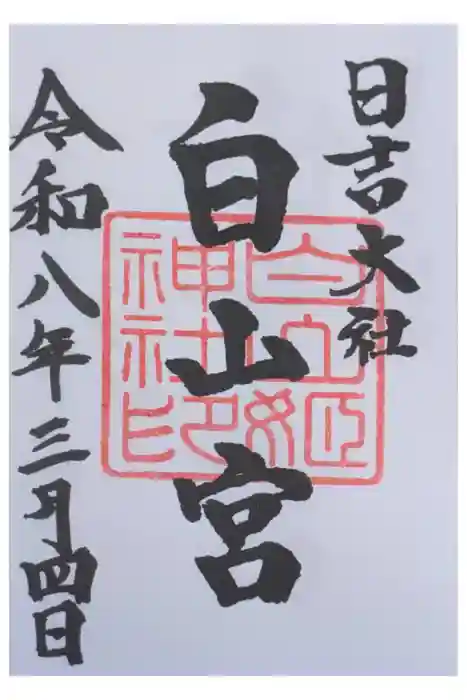 日吉大社
白山宮
令和八年三月四日
白山姫神社印